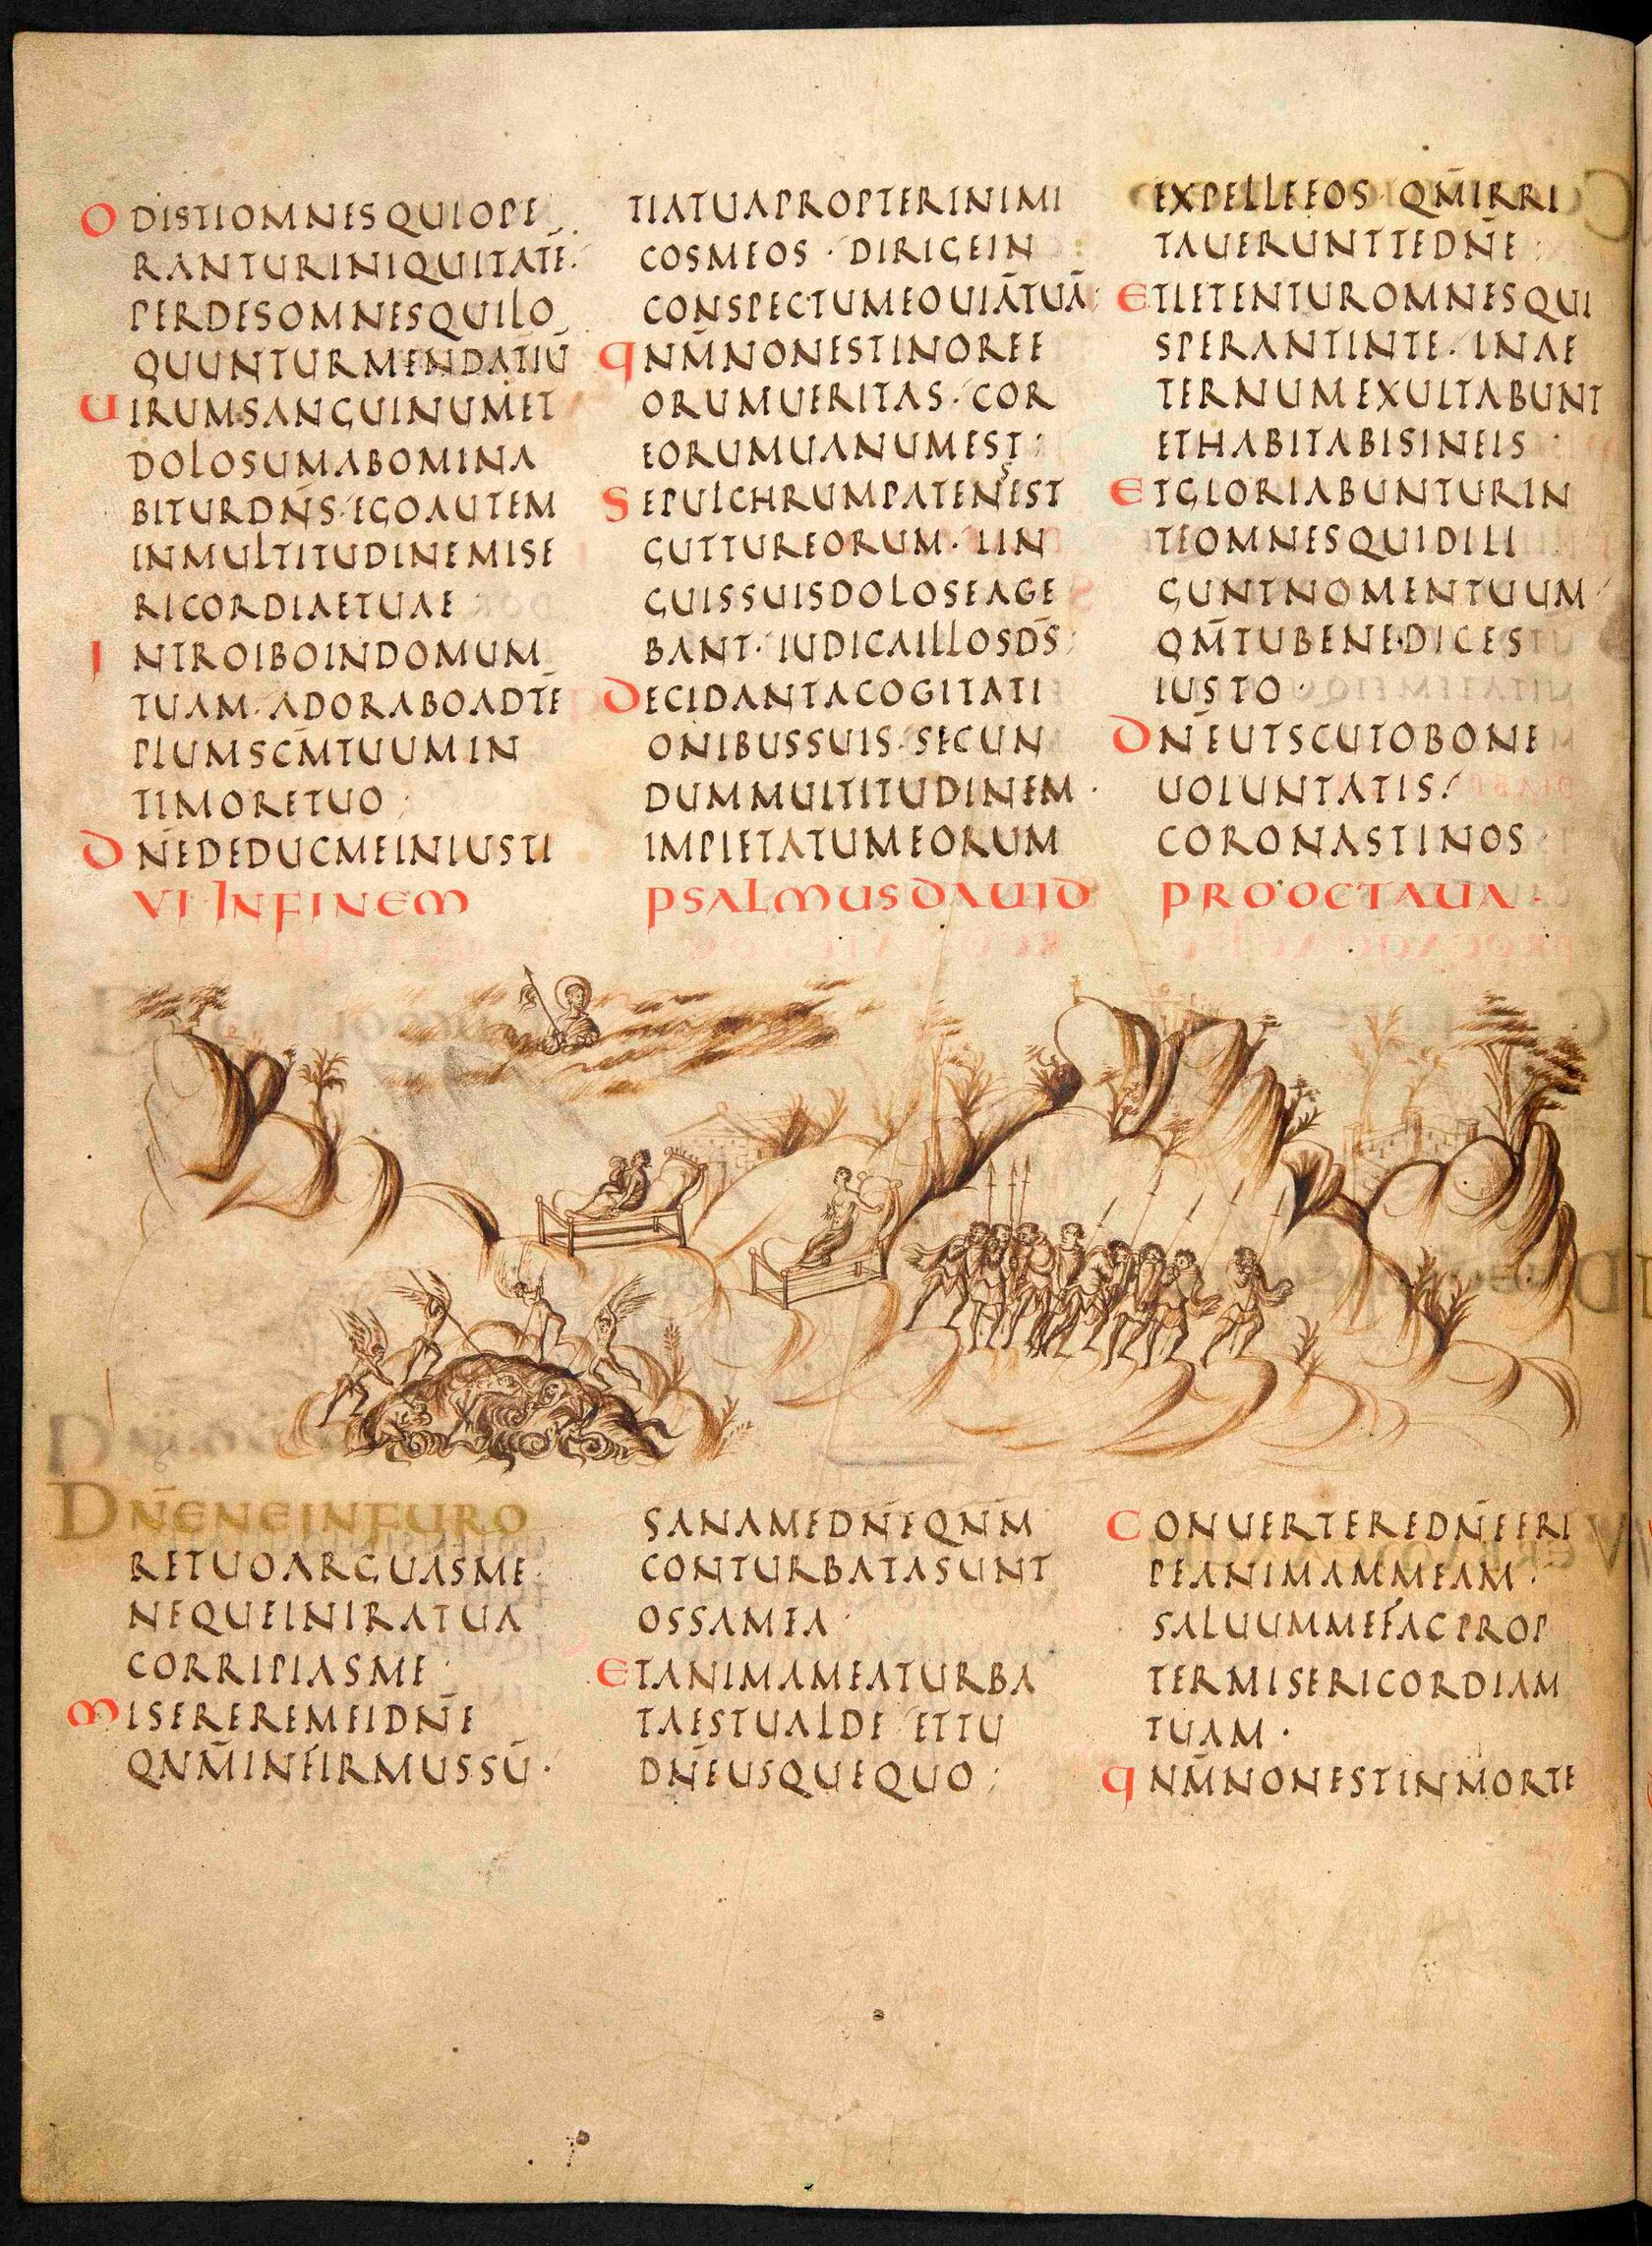 ODISTIOMNESQUIOPE
RANTURINIQUITATĒ.
PERDESOMNESQUILO
QUUNTURMENDATIŪ
UIRUMSANGUINUMET
DOLOSUMABOMINA
BITURDN̄S·EGOAUTEM
INMULTITUDINEMISE
RICORDIAETUAE
INTROIBOINDOMUM
TUAM·ADORABOADTĒ
PLUMSCM̄TUUMIN
TIMORETUO;
DN̄EDEDUCMEINIUSTI
TIATUAPROPTERINIMI
COSMEOS·DIRIGEIN
CONSPECTUMEOUIĀTUĀ
QNM̄NONESTINOREE
ORUMUERITAS·COR
EORUMUANUMEST;
SEPULCHRUMPATENSEST
GUTTUREORUM·LIN
GUISSUISDOLOSEAGE
BANT·IUDICAILLOSDS̄;
DECIDANTACOGITATI
ONIBUSSUIS·SECUN
DUMMULTITUDINEM·
IMPIETATUMEORUM
EXPELLEEOS·QM̄IRRI
TAUERUNTTEDN̄E:
ETLETENTUROMNESQUI
SPERANTINTE·INAE
TERNUMEXULTABUNT
ETHABITABISINEIS·
ETGLORIABUNTURIN
TEOMNESQUIDILI
GUNTNOMENTUUM
QM̄TUBENEDICES
IUSTO·
DN̄EUTSCUTOBONE
UOLUNTATIS·
CORONASTINOS
VI INFINEM PSALMUSDAUID PROOCTAUA·
DN̄ENEINFURO
RETUOARGUASME·
NEQUEINIRATUA
CORRIPIASME·
MISEREREMEIDN̄E
QNM̄INFIRMUSSŪ·
SANAMEDN̄EQNM̄
CONTURBATASUNT
OSSAMEA·
ETANIMAMEATURBA
TAESTUALDE·ETTU
DN̄EUSQUEQUO;
CONUERTEREDN̄EERI
PEANIMAMMEAM·
SALUUMMEFACPROP
TERMISERICORDIAM
TUAM·
QNM̄NONESTINMORTE